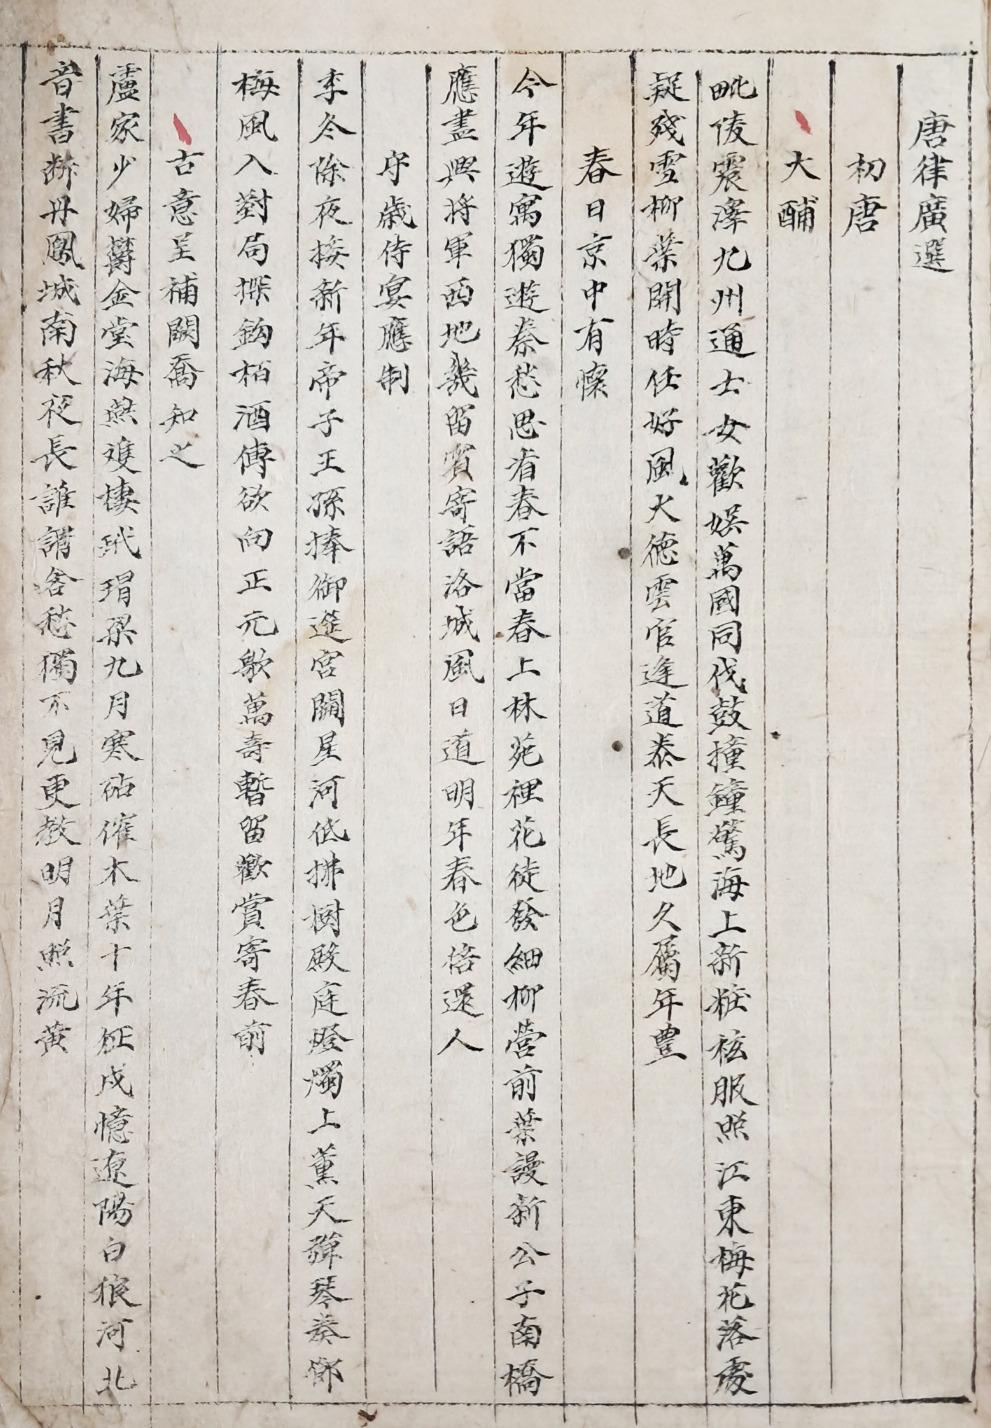 唐律廣選
初唐
大酺
毗陵震澤九州通士女歡娛萬國同伐鼓撞鐘驚海上新粧袨服照江東梅花落處
疑殘雪柳葉開時任好風大德雲官逢道泰天長地久屬年豊
春日京中有懷
今年遊寓獨遊秦愁思看春不當春上林苑裡花徒發細柳營前葉謾新公子南橋
應盡興將軍西地幾留賓寄語洛城風日道明年春色倍還人
守歲侍宴應制
季冬除夜接新年帝子王孫捧御筵宮闕星河低拂樹殿庭燈燭上薰天彈琴奏節
梅風入對局探鈎栢酒傳欲向正元歌萬壽暫留歡賞寄春前
古意呈補闕喬知之
盧家少婦欝金堂海燕雙棲玳瑁梁九月寒砧催木葉十年征戍憶遼陽白狼河北
音書斷丹鳳城南秋夜長誰謂含愁獨不見更教明月照流黃